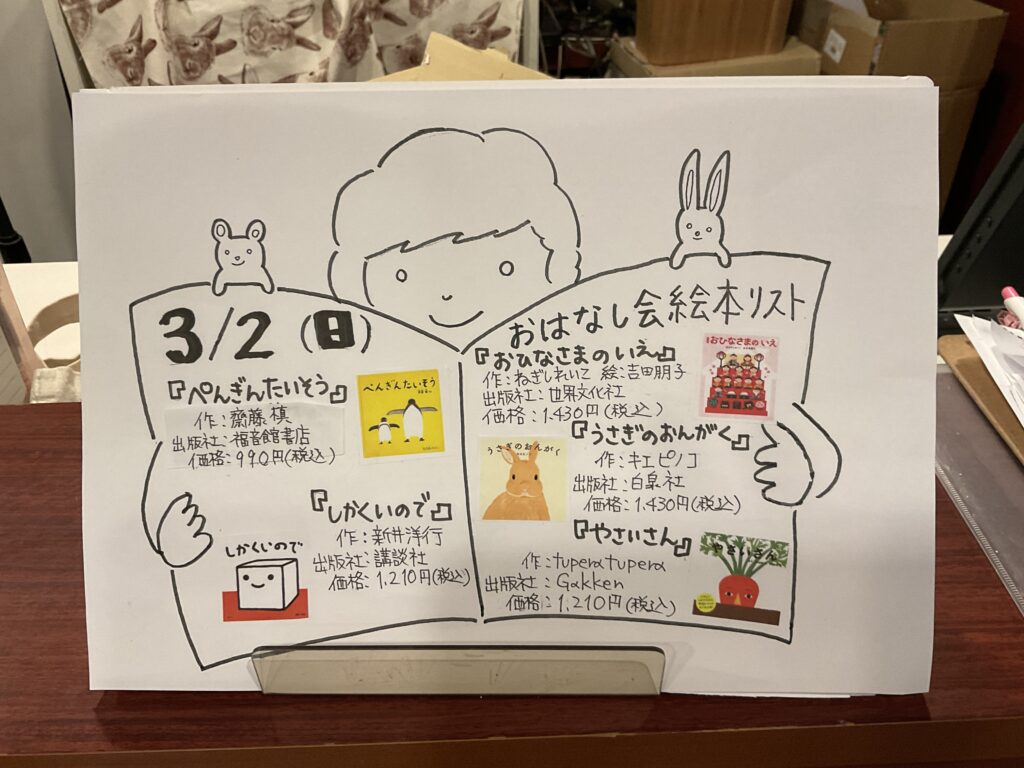 3/2（日）
『ぺんぎんたいそう』
作：齋藤 槙
出版社：福音館書店
価格：990円(税込)
ぺんぎんたいそう
『しかくいので』
作：新井洋行
出版社：講談社
価格：1,210円(税込)
しかくいので
おはなし会絵本リスト
『おひなさまのいえ』
作：ねぎしれいこ 絵：吉田朋子
出版社：世界文化社
価格：1,430円(税込)
おひなさまのいえ
『うさぎのおんがく』
作：キエピノコ
出版社：白泉社
価格：1,430円(税込)
うさぎのおんがく
『やさいさん』
作：tupera tupera
出版社：Gakken
価格：1,210円(税込)
やさいさん